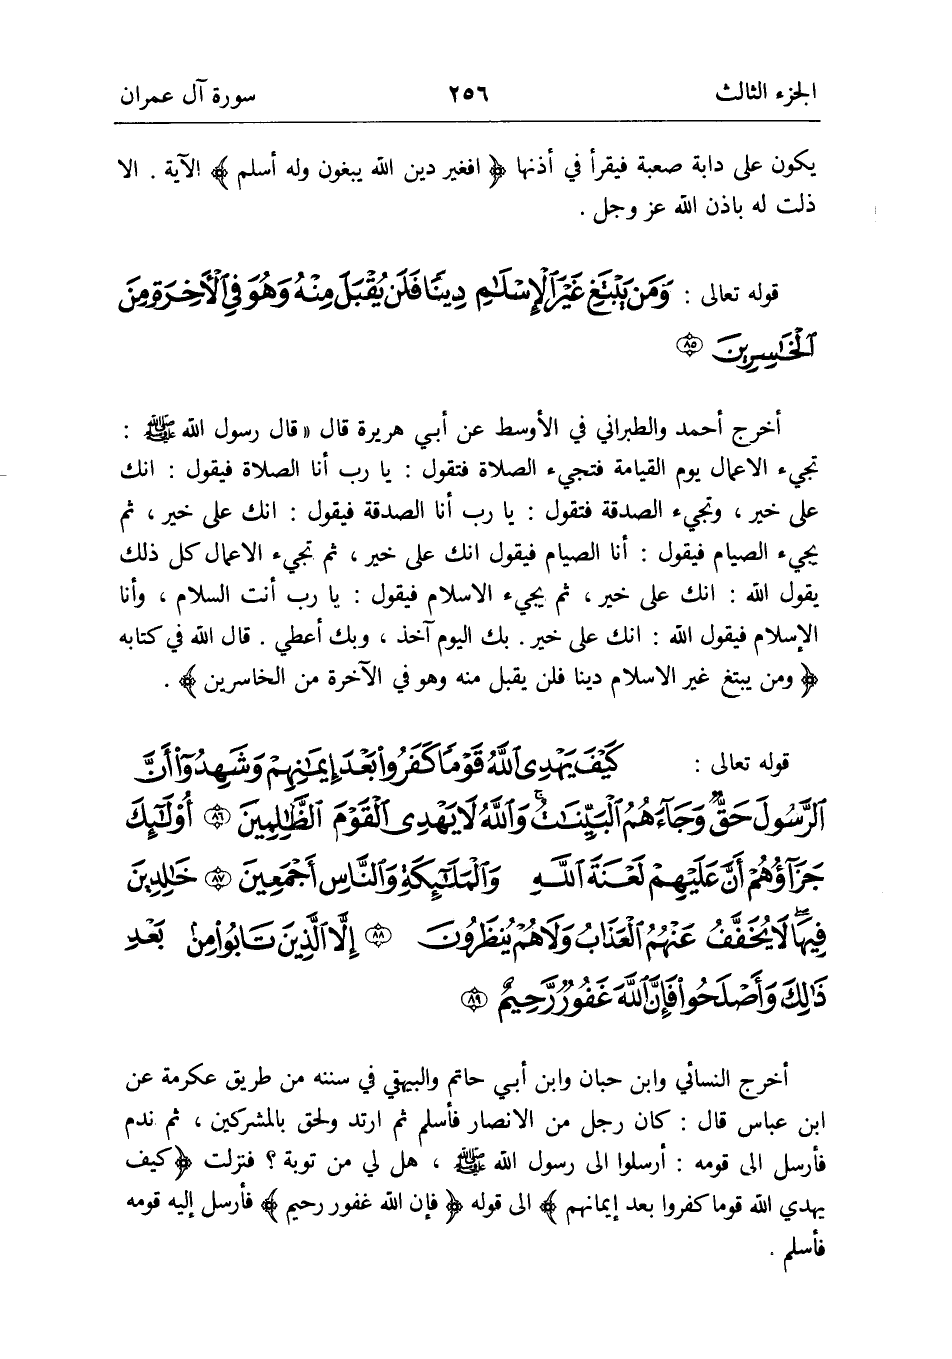 الجزء الثالث ٢٥٦ سورة آل عمران
يكون على دابة صعبة فيقرأ في أذنها ﴿ افغير دين الله يبغون وله أسلم ﴾ الآية . الا
ذلت له باذن الله عز وجل .
قوله تعالى : وَمَن يَبْتَغِ غَيْرَ ٱلْإِسْلَٰمِ دِينًا فَلَن يُقْبَلَ مِنْهُ وَهُوَ فِى ٱلْأَخِرَةِ مِنَ
ٱلْخَٰسِرِينَ ٨٥
أخرج أحمد والطبراني في الأوسط عن أبي هريرة قال « قال رسول الله ﷺ :
تجيء الاعمال يوم القيامة فتجيء الصلاة فتقول : يا رب أنا الصلاة فيقول : انك
على خير ، وتجيء الصدقة فتقول : يا رب أنا الصدقة فيقول : انك على خير ، ثم
يجيء الصيام فيقول : أنا الصيام فيقول انك على خير ، ثم تجيء الاعمال كل ذلك
يقول الله : انك على خير ، ثم يجيء الاسلام فيقول : يا رب أنت السلام ، وأنا
الإسلام فيقول الله : انك على خير . بك اليوم آخذ ، وبك أعطي . قال الله في كتابه
﴿ ومن يبتغ غير الاسلام دينا فلن يقبل منه وهو في الآخرة من الخاسرين ﴾ .
قوله تعالى : كَيْفَ يَهْدِى ٱللَّهُ قَوْمًا كَفَرُوا۟ بَعْدَ إِيمَٰنِهِمْ وَشَهِدُوٓا۟ أَنَّ
ٱلرَّسُولَ حَقٌّ وَجَآءَهُمُ ٱلْبَيِّنَٰتُ ۚ وَٱللَّهُ لَا يَهْدِى ٱلْقَوْمَ ٱلظَّٰلِمِينَ ٨٦ أُو۟لَٰٓئِكَ
جَزَآؤُهُمْ أَنَّ عَلَيْهِمْ لَعْنَةَ ٱللَّهِ وَٱلْمَلَٰٓئِكَةِ وَٱلنَّاسِ أَجْمَعِينَ ٨٧ خَٰلِدِينَ
فِيهَا لَا يُخَفَّفُ عَنْهُمُ ٱلْعَذَابُ وَلَا هُمْ يُنظَرُونَ ٨٨ إِلَّا ٱلَّذِينَ تَابُوا۟ مِنۢ بَعْدِ
ذَٰلِكَ وَأَصْلَحُوا۟ فَإِنَّ ٱللَّهَ غَفُورٌ رَّحِيمٌ ٨٩
أخرج النسائي وابن حبان وابن أبي حاتم والبيهقي في سننه من طريق عكرمة عن
ابن عباس قال : كان رجل من الانصار فأسلم ثم ارتد ولحق بالمشركين ، ثم ندم
فأرسل الى قومه : أرسلوا الى رسول الله ﷺ ، هل لي من توبة ؟ فنزلت ﴿ كيف
يهدي الله قوما كفروا بعد إيمانهم ﴾ الى قوله ﴿ فإن الله غفور رحيم ﴾ فأرسل إليه قومه
فأسلم .